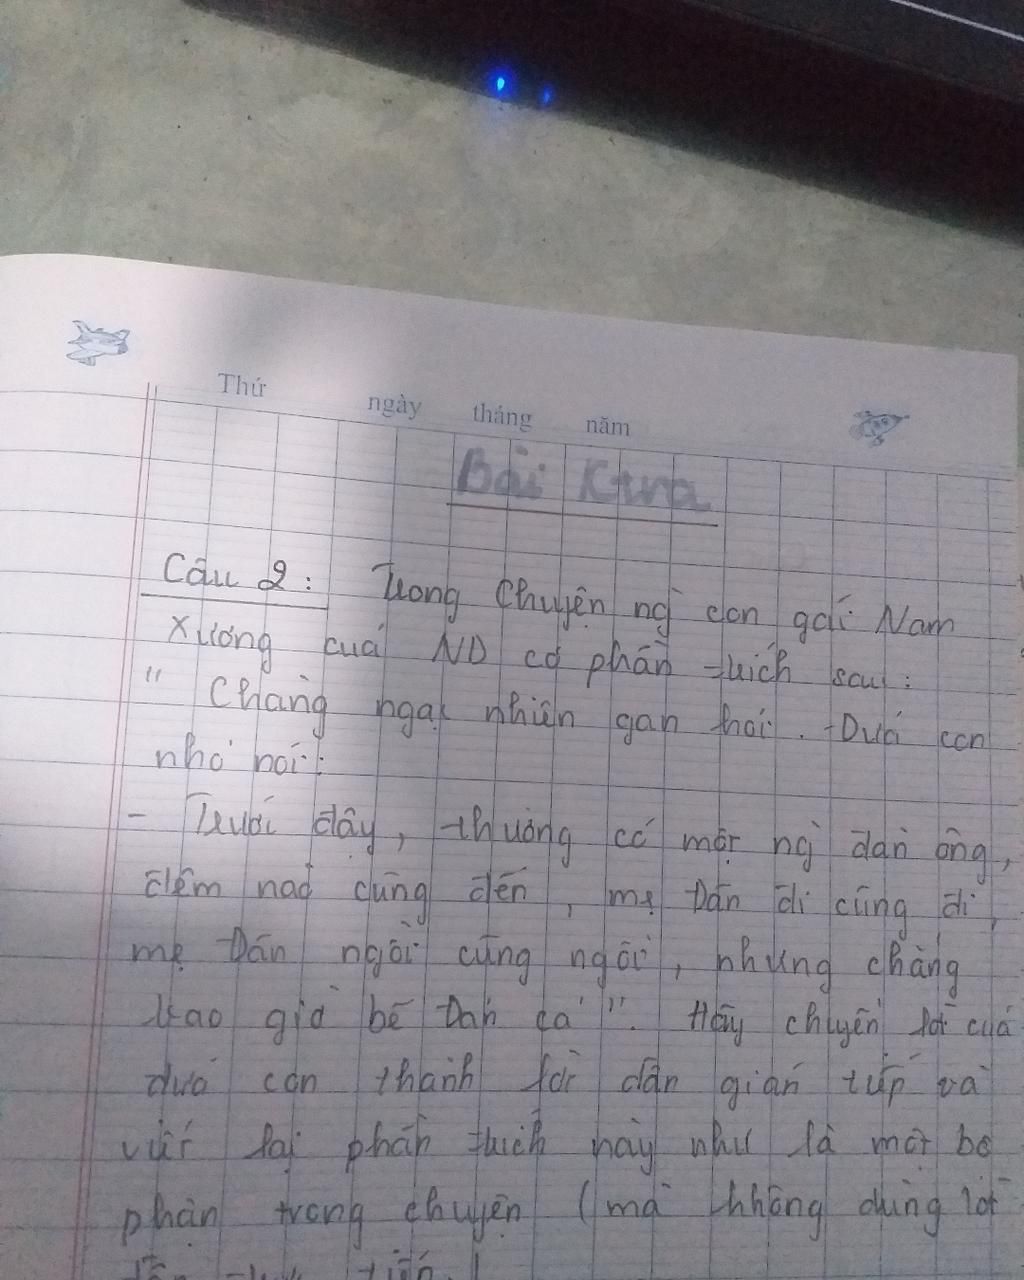 Thứ ngày tháng năm
Bài Ktra
Câu 2: Trong Chuyện ng` con gái Nam
Xương của ND có phần trích sau:
" Chàng ngạc nhiên gạn hỏi. Đứa con
nhỏ nói:
- Trước đây, thường có một ng` đàn ông,
đêm nào cũng đến, mẹ Đản đi cũng đi,
mẹ Đản ngồi cũng ngồi, nhưng chẳng
bao giờ bế Đản cả". Hãy chuyển lời của
đứa con thành lời dẫn gián tiếp và
viết lại phần trích này như là một bộ
phận trong chuyện (mà không dùng lời